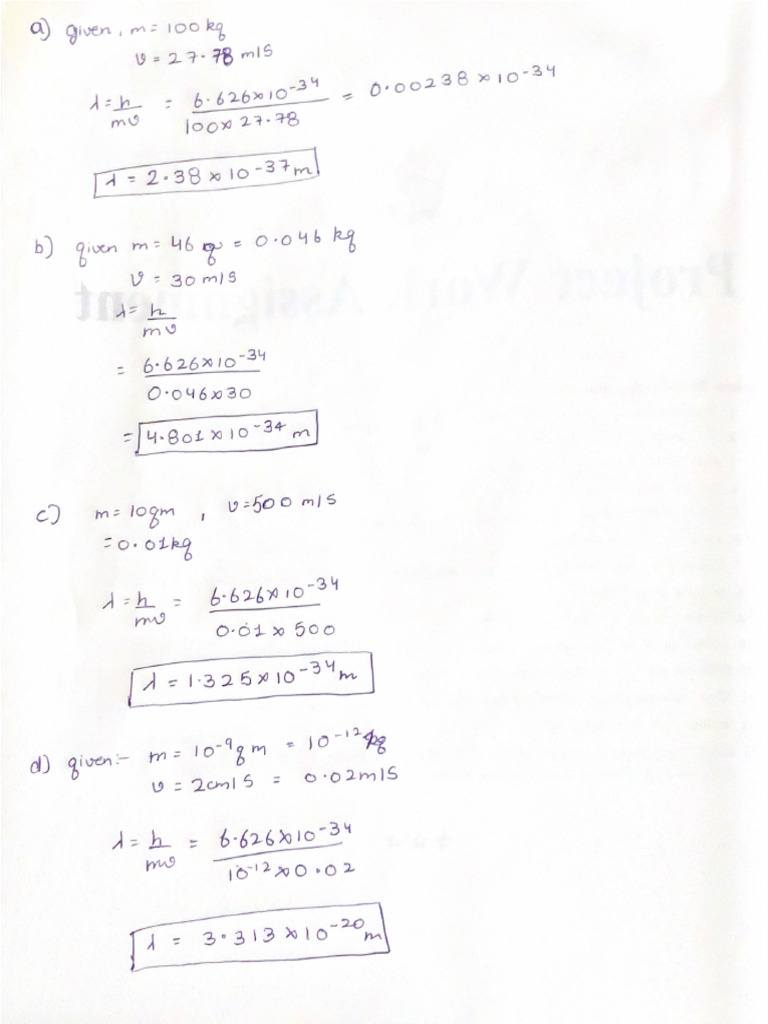 a) given, m = 100 kg
v = 27.78 m/s
λ = h/mv = 6.626×10^-34 / 100×27.78 = 0.00238×10^-34
λ = 2.38×10^-37 m
b) given m = 46 g = 0.046 kg
v = 30 m/s
λ = h/mv
= 6.626×10^-34 / 0.046×30
= 4.801×10^-34 m
c) m = 10gm, v = 500 m/s
= 0.01kg
λ = h/mv = 6.626×10^-34 / 0.01×500
λ = 1.325×10^-34 m
d) given:- m = 10^-9 gm = 10^-12 kg
v = 2cm/s = 0.02m/s
λ = h/mv = 6.626×10^-34 / 10^-12×0.02
λ = 3.313×10^-20 m
Project Work Assignment